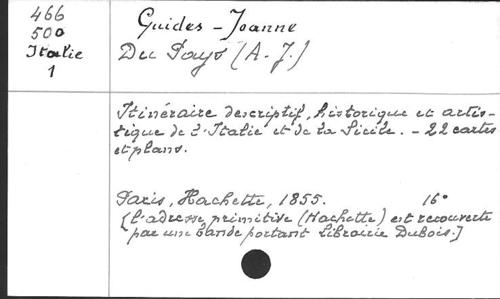 466
500
Italie
1
Guides - Joanne
Du Pays (A. J.)
Itinéraire descriptif, historique et artis-
tique de l'Italie et de la Sicile. - 22 cartes
et plans.
Paris, Hachette, 1855. 16°
[l'adresse primitive (Hachette) est recouverte
par une bande portant Librairie Dubois.]